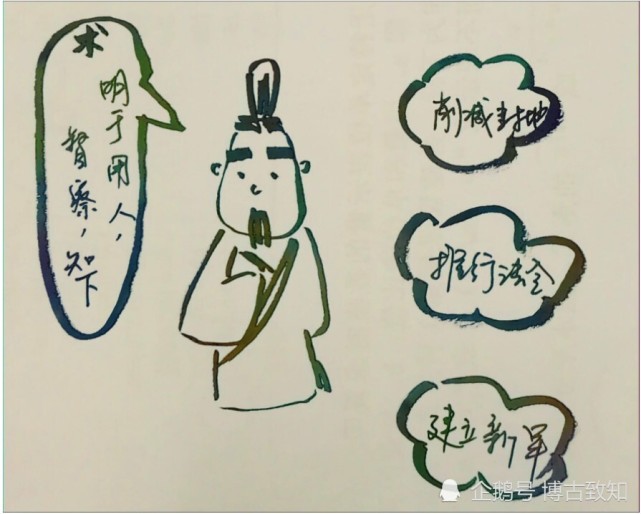 术
明于用人，
督察，知下
削减封地
推行法令
建立新军
企鹅号 博古致知